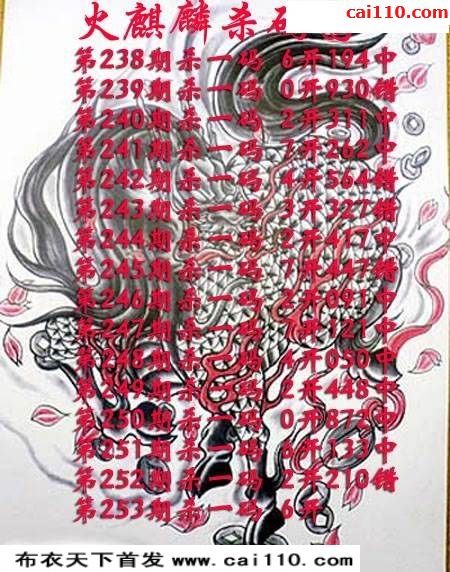 cai110.com
火麒麟杀码
第238期杀一码 6开194中
第239期杀一码 0开930错
第240期杀一码 2开311中
第241期杀一码 7开262中
第242期杀一码 4开564错
第243期杀一码 3开327错
第244期杀一码 2开417中
第245期杀一码 7开447错
第246期杀一码 2开091中
第247期杀一码 开121中
第248期杀一码 4开050中
第249期杀一码 2开448中
第250期杀一码 0开872中
第251期杀一码 6开133中
第252期杀一码 2开210错
第253期杀一码 6开
布衣天下首发 www.cai110.com